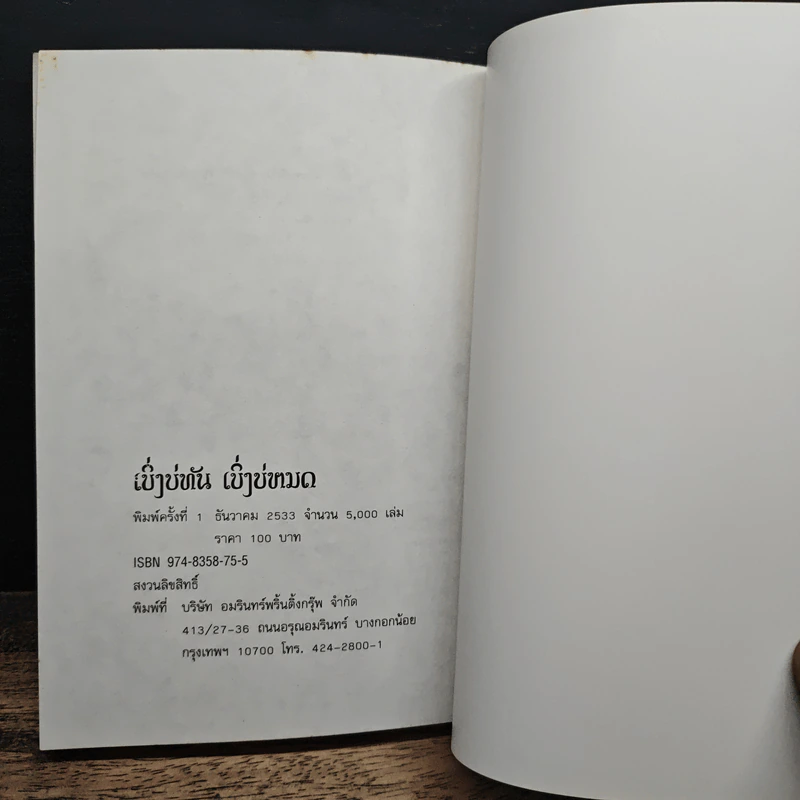 เบิ่งบ่ทัน เบิ่งบ่หมด
พิมพ์ครั้งที่ 1 ธันวาคม 2533 จำนวน 5,000 เล่ม
ราคา 100 บาท
ISBN 974-8358-75-5
สงวนลิขสิทธิ์
พิมพ์ที่ บริษัท อมรินทร์พริ้นติ้งกรุ๊พ จำกัด
413/27-36 ถนนอรุณอมรินทร์ บางกอกน้อย
กรุงเทพฯ 10700 โทร. 424-2800-1